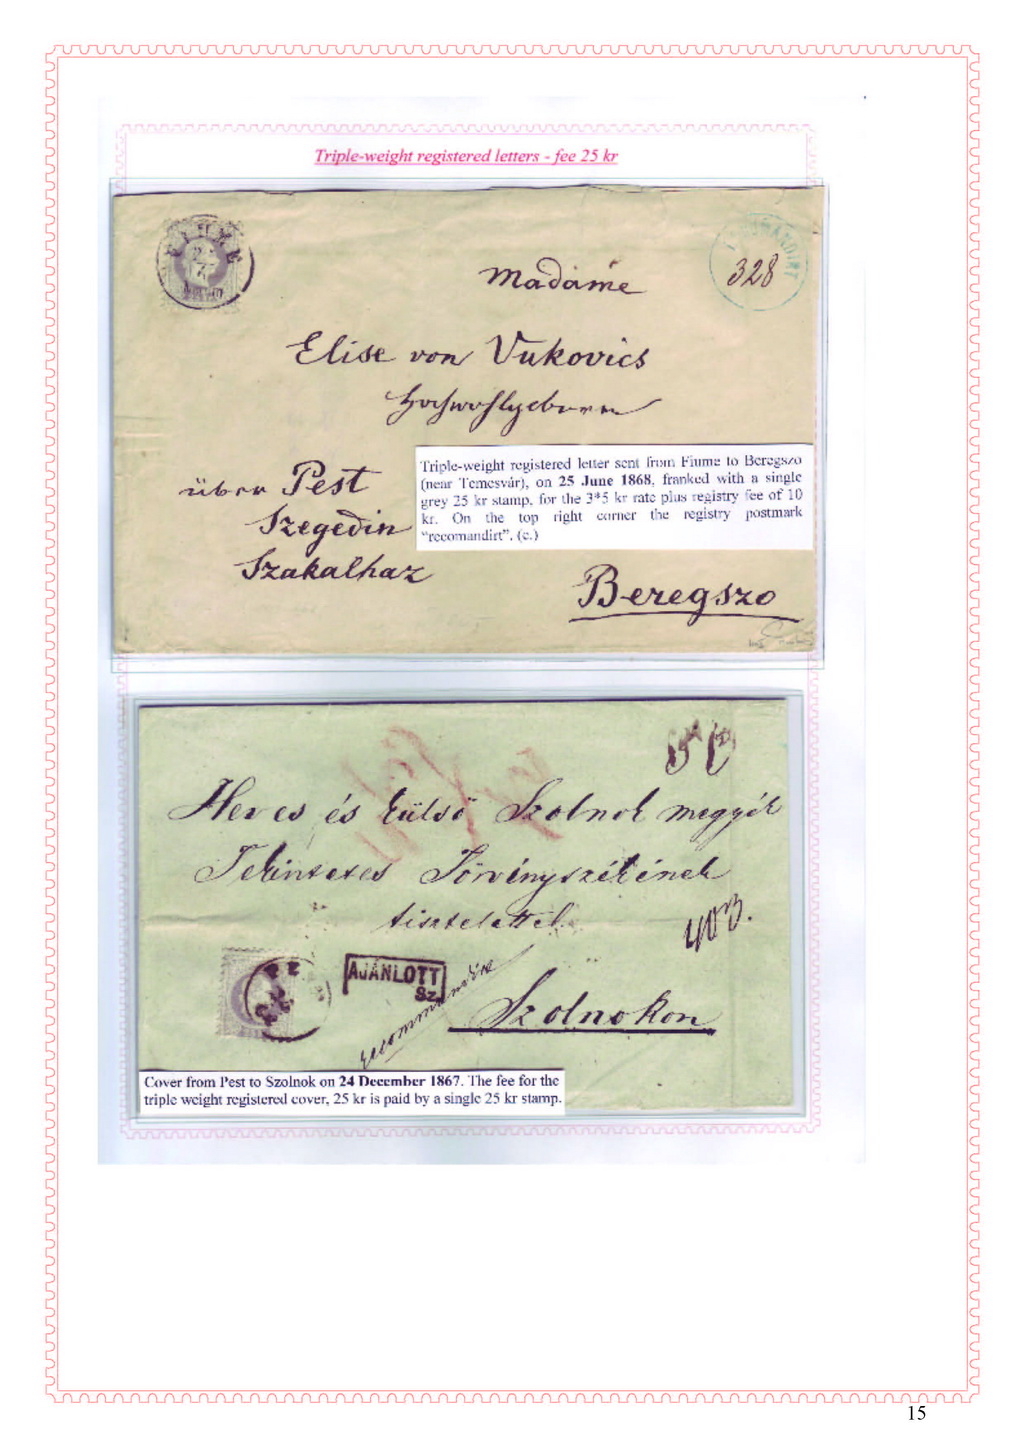 Triple-weight registered letters - fee 25 kr
FIUME
328
Madame
Elise von Vukovics
Hochwohlgeboren
über Pest
Szegedin
Szakalhaz
Beregszo
Triple-weight registered letter sent from Fiume to Beregszo
(near Temesvár), on 25 June 1868, franked with a single
grey 25 kr stamp, for the 3*5 kr rate plus registry fee of 10
kr. On the top right corner the registry postmark
"recomandirt". (c.)
Heves és külső Szolnok megyék
Tekintetes Törvényszékének
tisztelettel
403.
AJÁNLOTT
Sz.
recommandirt
Szolnokon
Cover from Pest to Szolnok on 24 December 1867. The fee for the
triple weight registered cover, 25 kr is paid by a single 25 kr stamp.
15